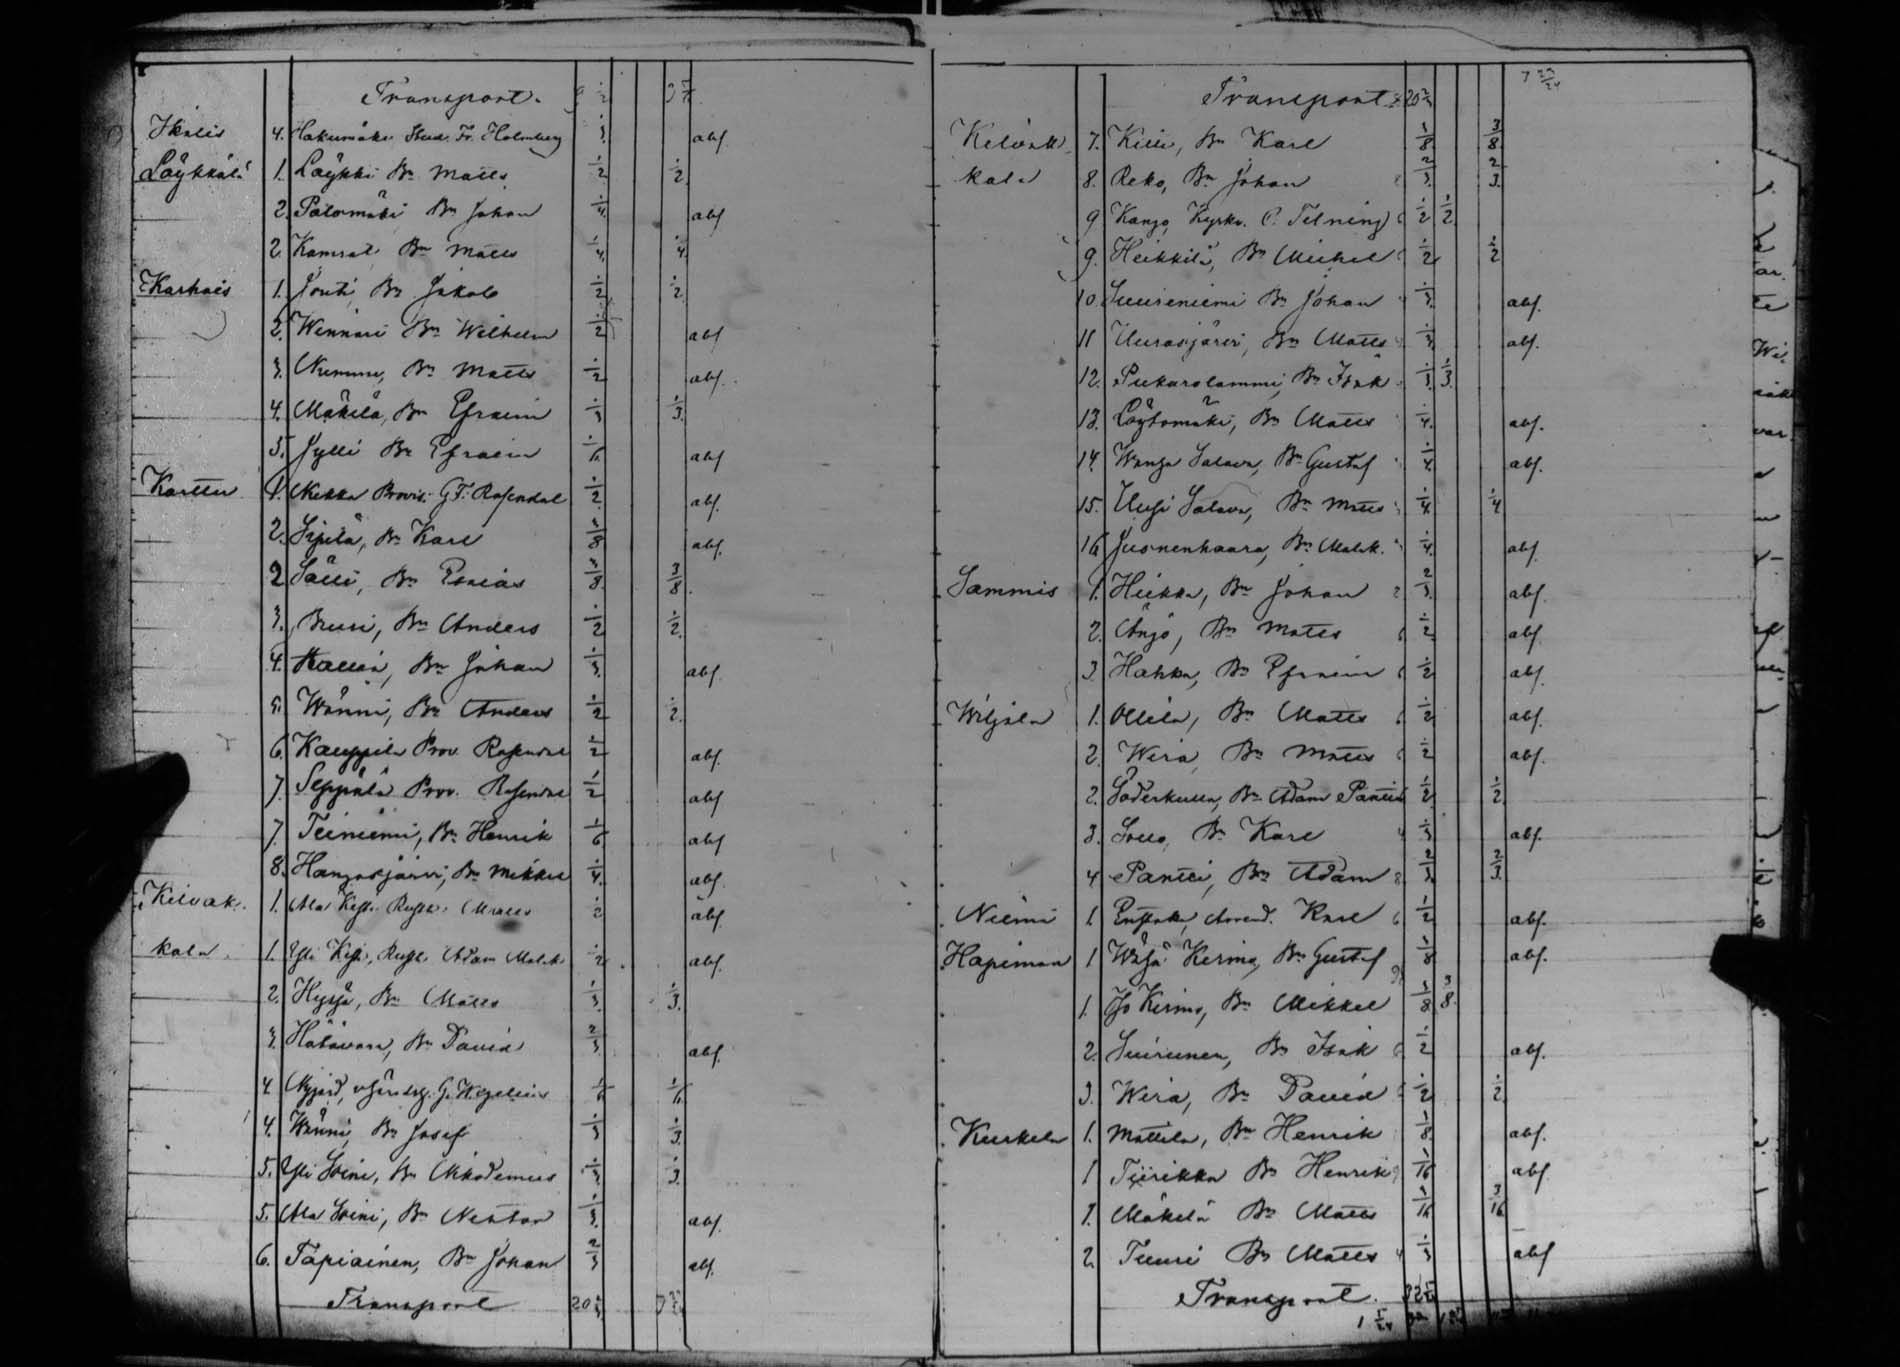 Transport.
Ikalis 4. Hakumäki Stud. Fr. Holmberg 1/3 abf.
Löykkälä 1. Löykki Bn Matts 1/2 1/2
2. Palomäki Bn Johan 1/4 abf
2 Kamrat, Bn Matts 1/4 1/4
Karhois 1. Jouti, Bn Jakob 1/2 1/2
2. Wennari Bn Wilhelm 1/2 abf
3. Numme, Bn Matts 1/2 abf.
4. Mäkilä, Bn Efraim 1/3 1/3
5. Jylli Bn Efraim abf
Karttu 1. Mekka Provis. G.F. Rosendal 1/2 abf.
2. Sipilä, Bn Karl abf.
2 Sälli, Bn Esaias 3/8 3/8
3. Brusi, Bn Anders 1/2 1/2
4. Bn Johan 1/3 abf.
5. Wänni, Bn Anders 1/2 1/2
6. Kauppila Prov. Rosendal 1/2 abf.
7. Seppälä Prov. Rosendal 1/2 abf
7. Teiniemi, Bn Henrik 1/6 abf
8. Hangasjärvi, Bn Mikkel 1/4 abf
Kilvak- 1. Ala Kesti Rusth. Matts 1/2 abf
kala 1. Yli Kesti, Rusth. Adam Malak. 1/2 abf.
2. Hyrjä, Bn Matts 1/3 1/3
3. Bn David 2/3 abf
4 G. Wegelius
4. Wänni, Bn Josef 1/3 1/3
5. Yli Soini, Bn Nikodemus 1/3 1/3
5. Ala Soini, Bn Nestor 1/3 abf.
6. Tapiainen, Bn Johan 2/3 abf.
Transport
Transport
Kilvak- 7. Killi, Bn Karl 3/8 3/8
kala 8. Reko, Bn Johan 2/3 2/3
9 Kango, Kyrkv. C. Telning 1/2 1/2
9. Heikkilä, Bn Michel 1/2 1/2
10. Suuriniemi Bn Johan 1/3 abf.
11 Uurasjärvi, Bn Matts 1/3 abf.
12. Pukarolammi, Bn Isak 1/3 1/3
13. Löytomäki, Bn Matts 1/4 abf.
14. Wanha Salava, Bn Gustaf 1/4 abf.
15. Uusi Salava, Bn Matts 1/4 1/4
16 Juonenhaara, Bn Malak. 1/4 abf.
Sammis 1. Heikka, Bn Johan 2/3 abf.
2. Änjö, Bn Matts 1/2 abf.
3. Hakka, Bn Efraim 1/2 abf.
Wiljala 1. Ollila, Bn Matts 1/2 abf.
2. Wira, Bn Matts 1/2 abf.
2. Söderkulla, Bn Adam Pantti 1/2 1/2
3. Bn Karl 1/3 abf.
4 Pantti, Bn Adam 2/3 2/3
Niemi 1. Arrend. Karl 1/2 abf.
Hapiman 1 Kerimo, Bn Gustaf abf.
1. Iso Kerimo, Bn Mikkel 3/8 3/8
2. Bn Isak 1/2 abf.
3. Wira, Bn David 1/2 1/2
Kurkela 1. Mattila, Bn Henrik abf.
1 Tiirikka Bn Henrik abf
1. Mäkelä Bn Matts 3/16 3/16
2. Tuuri Bn Matts 1/3 abf
Transport.